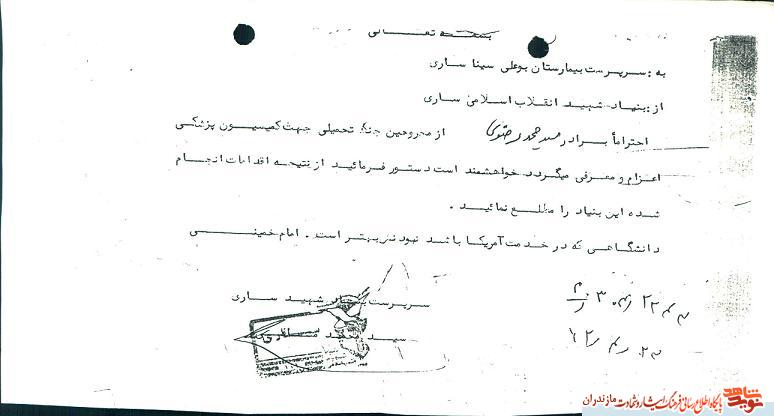 بسمه تعالی
به: سرپرست بیمارستان بوعلی سینا ساری
از: بنیاد شهید انقلاب اسلامی ساری
احتراماً برادر سید محمد رضوی از مجروحین جنگ تحمیلی جهت کمیسیون پزشکی
اعزام و معرفی میگردد خواهشمند است دستور فرمائید از نتیجه اقدامات انجام
شده این بنیاد را مطلع نمائید .
دانشگاهی که در خدمت آمریکا باشد نبودنش بهتر است . امام خمینی
سرپرست بنیاد شهید ساری
سید
نوید شاهد
پایگاه اطلاع رسانی فرهنگ ایثار و شهادت مازندران